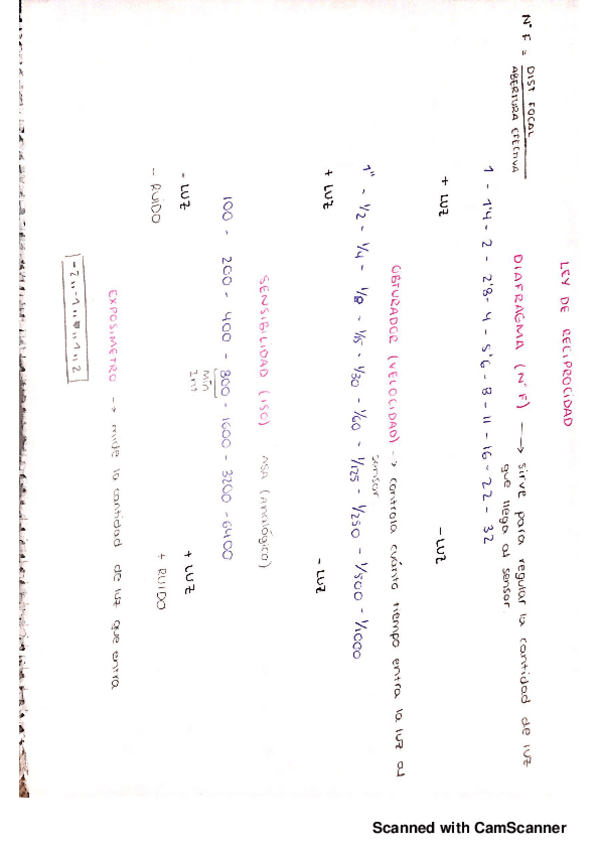 LEY DE RECIPROCIDAD
Nº F = DIST FOCAL
ABERTURA EFECTIVA
DIAFRAGMA (Nº F) → sirve para regular la cantidad de luz
que llega al sensor.
1 - 1'4 - 2 - 2'8 - 4 - 5'6 - 8 - 11 - 16 - 22 - 32
+ LUZ - LUZ
OBTURADOR (VELOCIDAD) → controla cuánto tiempo entra la luz al
sensor
1" - 1/2 - 1/4 - 1/8 - 1/15 - 1/30 - 1/60 - 1/125 - 1/250 - 1/500 - 1/1000
+ LUZ - LUZ
SENSIBILIDAD (ISO) ASA (analógico)
100 - 200 - 400 - 800 - 1600 - 3200 - 6400
Min
Int
- LUZ + LUZ
- RUIDO + RUIDO
EXPOSIMETRO → mide la cantidad de luz que entra
Scanned with CamScanner